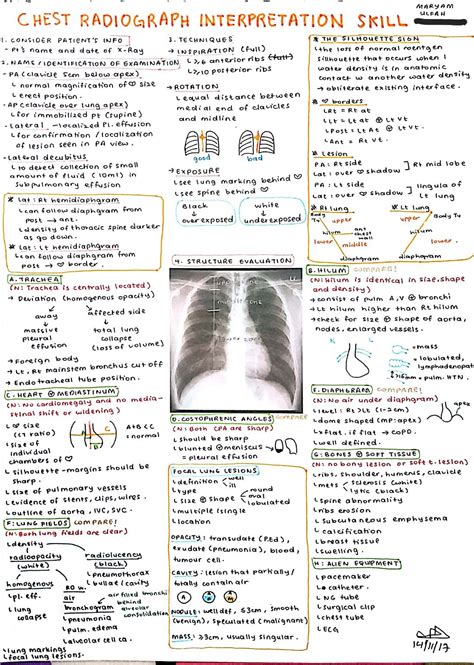 CHEST RADIOGRAPH INTERPRETATION SKILL
MARYAM
1. CONSIDER PATIENT'S INFO
- Pt's name and date of X-Ray
2. NAME / IDENTIFICATION OF EXAMINATION
- PA (clavicle 5cm below apex)
↳ normal magnification of ♡ size
↳ erect position.
- AP (clavicle over lung apex)
↳ for immobilized pt (supine)
- Lateral → localised Pl. effusion
↳ for confirmation / localization
of lesion seen in PA view.
- Lateral decubitus
↳ to detect collection of small
amount of fluid (10ml) in
subpulmonary effusion
* Lat: Rt hemidiaphgram
↳ can follow diaphgram from
post → ant.
↳ density of thoracic spine darker
as go down.
* Lat: Lt hemidiaphgram
↳ can follow diaphgram from
post → ♡ border.
3. TECHNIQUES
→ INSPIRATION (full)
↳ ≥6 anterior ribs (full)
↳ ≥10 posterior ribs
→ ROTATION
↳ equal distance between
medial end of clavicles
and midline
good bad
→ EXPOSURE
↳ see lung marking behind ♡
↳ see spine behind ♡
Black white
↓ ↓
overexposed underexposed
* THE SILHOUETTE SIGN
↳ the loss of normal roentgen
silhouette that occurs when 1
water density is in anatomic
contact w another water density
→ obliterate existing interface.
* ♡ borders
↳ Rt = Rt At
↳ Lt = Lt At ⊕ Lt Vt
↳ Post = Lt At ⊕ Lt Vt
↳ Ant = Rt Vt
* Lesion
PA: Rt side
Lat: over ♡ shadow
Rt mid lobe
PA: Lt side
Lat: over ♡ shadow
lingula of
Lt lung
* Rt lung
Body
upper
hilum
ant
chest
wall
lower
middle
diaphgram
* Lt lung
upper
Body
hilum
lower
diaphgram
4. STRUCTURE EVALUATION
A. TRACHEA
(N: Trachea is centrally located)
→ Deviation (homogenous opacity)
away affected side
↓ ↓
massive total lung
pleural collapse
effusion (loss of volume)
→ Foreign body
→ Lt, Rt mainstem bronchus cut off
→ Endotracheal tube position.
B. HILUM COMPARE!
(N: Hilum is identical in size, shape
and density)
→ consist of pulm A, V ⊕ bronchi
→ Lt hilum higher than Rt hilum
→ check for size ⊕ shape of aorta,
nodes, enlarged vessels.
= mass
= lobulated,
lymphadenopathy
= pulm. HTN
C. HEART ⊕ MEDIASTINUM
(N: No cardiomegaly and no medias-
tinal shift or widening)
↳ ♡ size
(CT ratio)
↳ size of
individual
chambers of
♡
A+B<C
= normal
↳ silhouette-margins should be
sharp.
↳ size of pulmonary vessels
↳ evidence of stents, clips, wires.
↳ outline of aorta, IVC, SVC.
D. COSTOPHRENIC ANGLES COMPARE
(N: Both CPA are sharp)
↳ should be sharp
↳ blunted ⊕ meniscus
= pleural effusion
E. DIAPHGRAM COMPARE!
(N: No air under diaphgram)
↳ level: Rt > Lt (1-2cm)
↳ dome shaped (MP: apex)
↳ flat. if flat → COPD.
↳ well defined.
F: LUNG FIELDS COMPARE!
(N: Both lung fields are clear)
↳ density
radioopacity
(white)
radiolucency
(black)
↳ pneumothorax
↳ bullae / cavity
homogenous
↳ pl. eff.
↳ lung
collapse
air
bronchogram
↳ pneumonia
↳ pulm. edema
↳ alveolar ca.
air filled bronchi
behind
alveolar
consolidation
↳ lung markings
↳ focal lung lesions.
FOCAL LUNG LESIONS.
↳ definition
well
ill
↳ size ⊕ shape
round
oval
lobulated
↳ multiple / single
↳ location
OPACITY: transudate (PEd),
exudate (pneumonia), blood,
tumour cell.
CAVITY: lesion that partially /
bially contain air
NODULE: well def, <3cm, smooth
(benign), speculated (malignant)
MASS: ≥3cm, usually singular.
G: BONES ⊕ SOFT TISSUE
(N: no bony lesion or soft t. lesion)
↳ ribs, shoulder, humerus, clavicle
↳ mets
sclerosis (white)
lytic (black)
↳ spine abnormality
↳ ribs erosion
↳ subcutaneous emphysema
↳ calcification
↳ breast tissue
↳ swelling.
H: ALIEN EQUIPMENT
↳ pacemaker
↳ catheter.
↳ NG tube
↳ surgical clip
↳ chest tube
↳ ECG
14/11/17